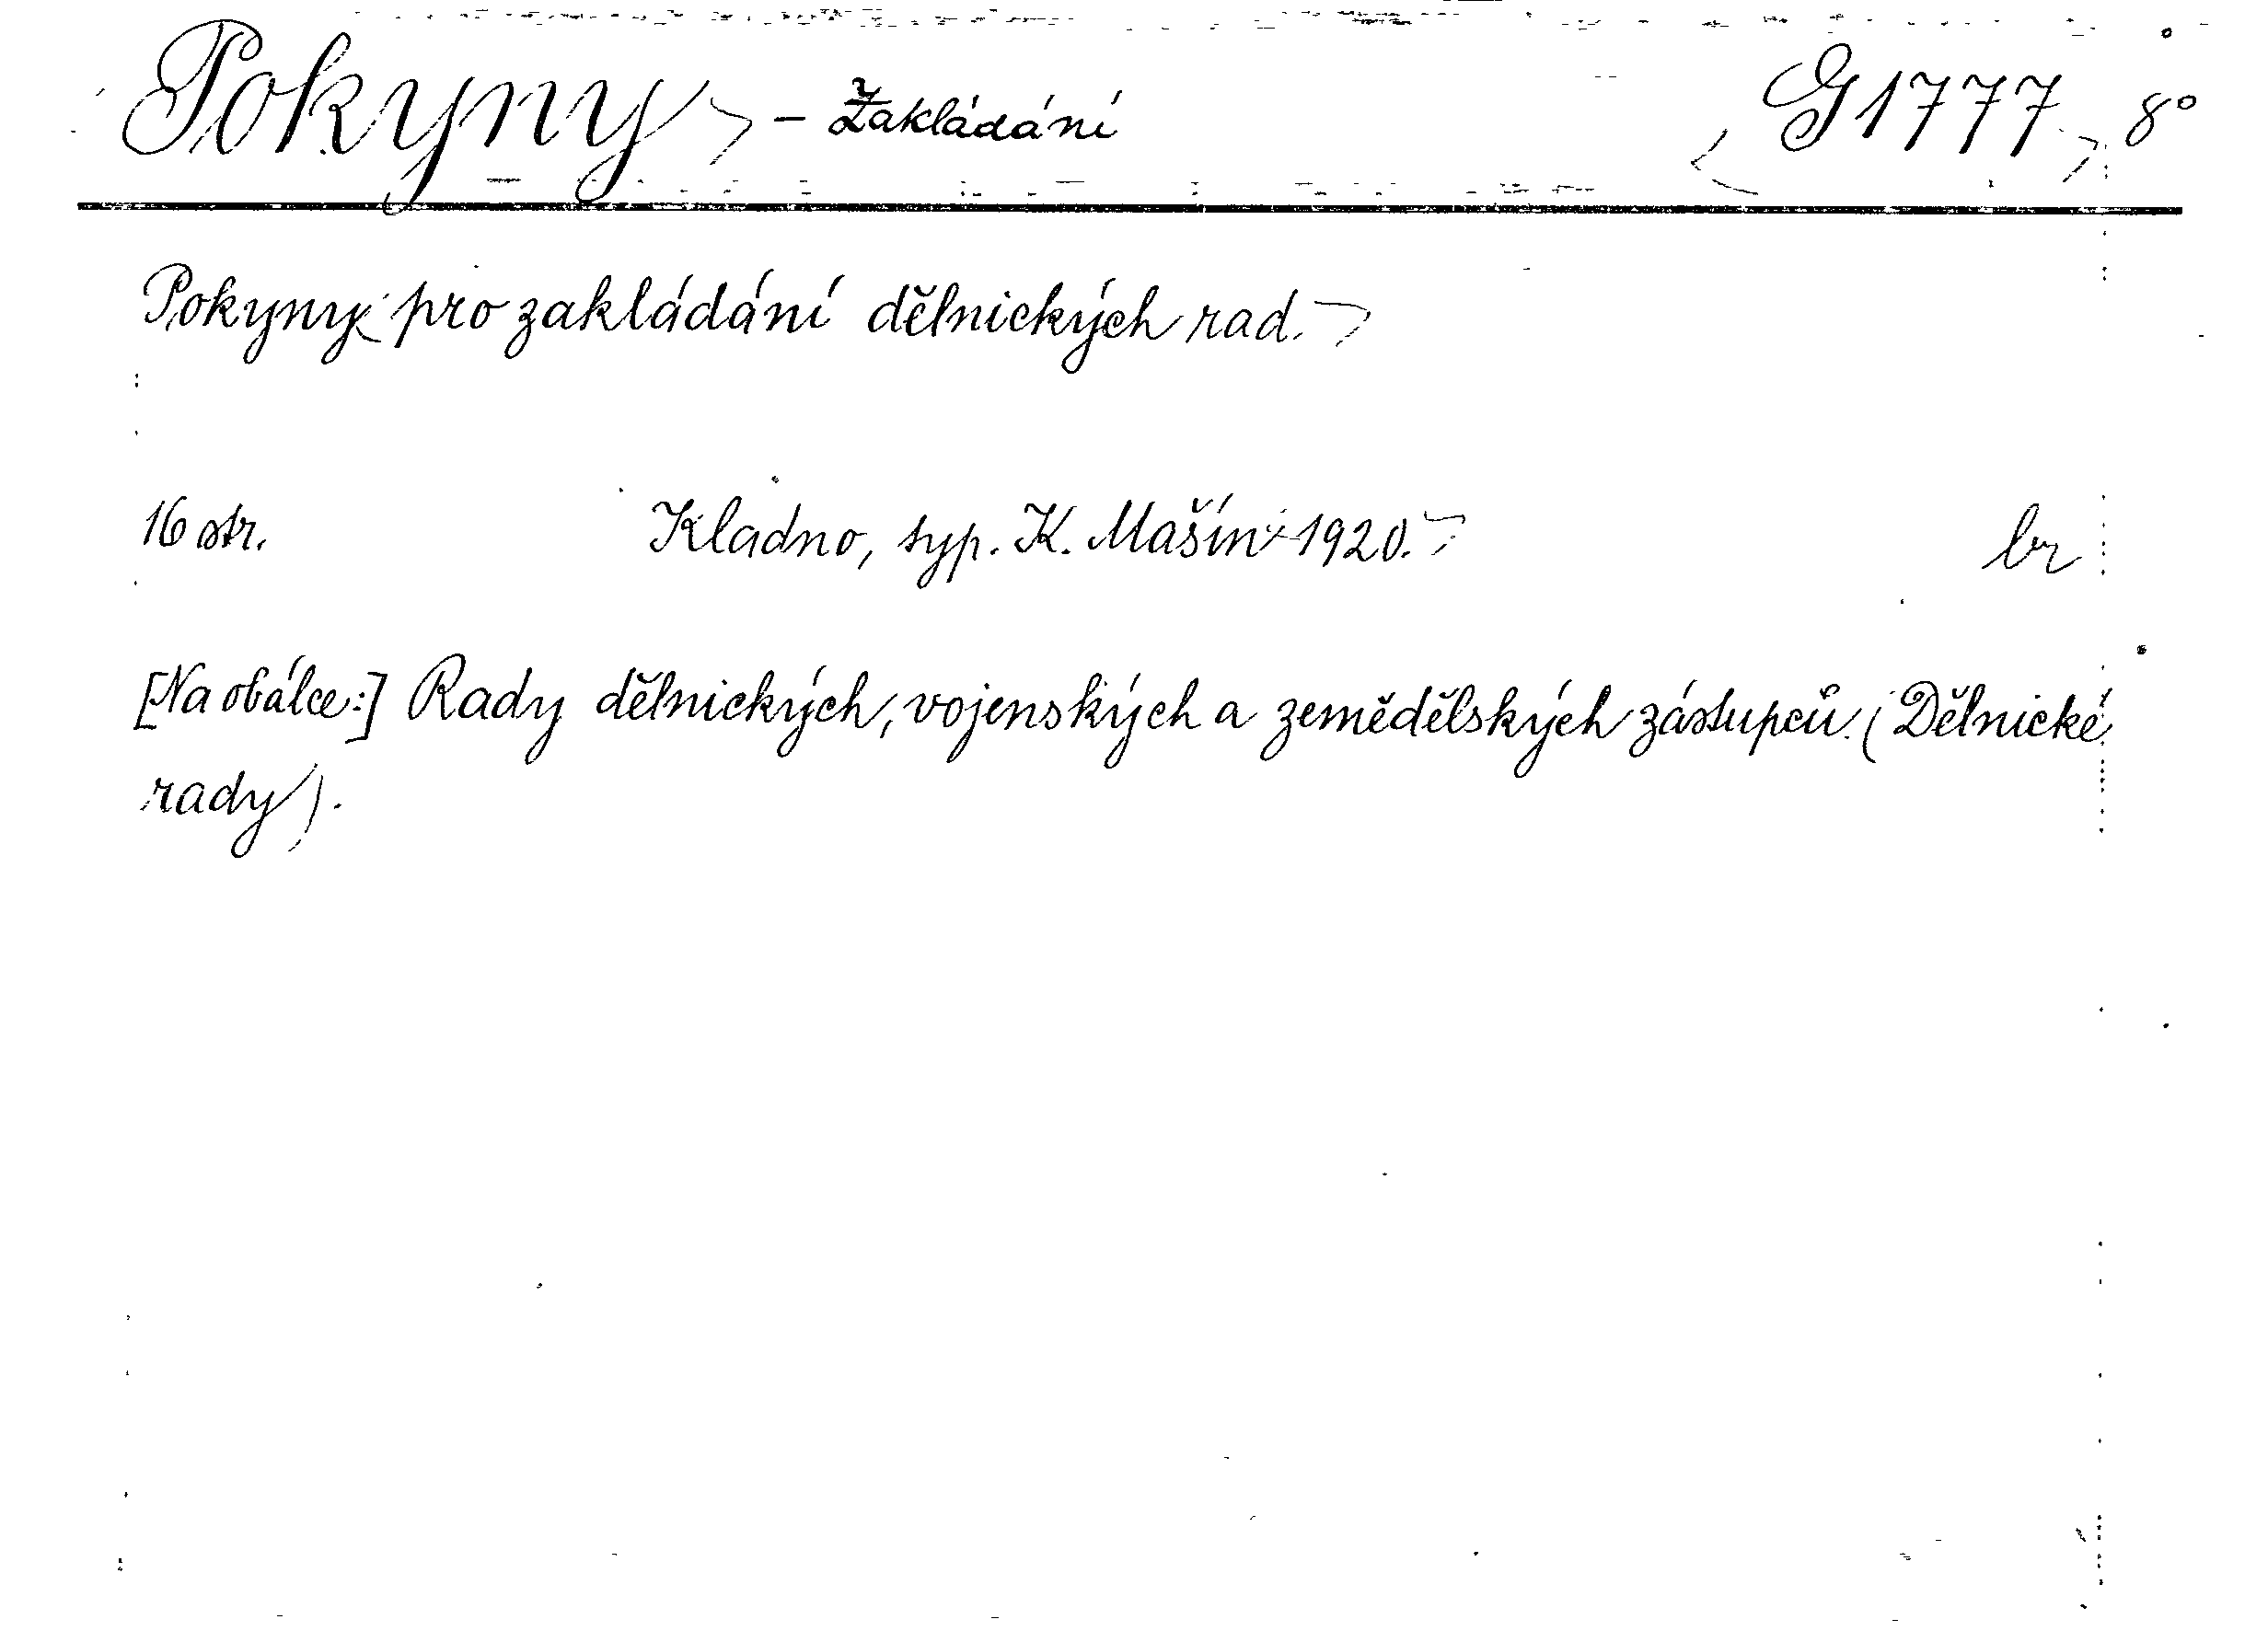 Pokyny - Zakládání G 1777 8°
Pokyny pro zakládání dělnických rad.
16 str. Kladno, typ. K. Mašín 1920. br
[Na obálce:] Rady dělnických, vojenských a zemědělských zástupců. (Dělnické
rady).